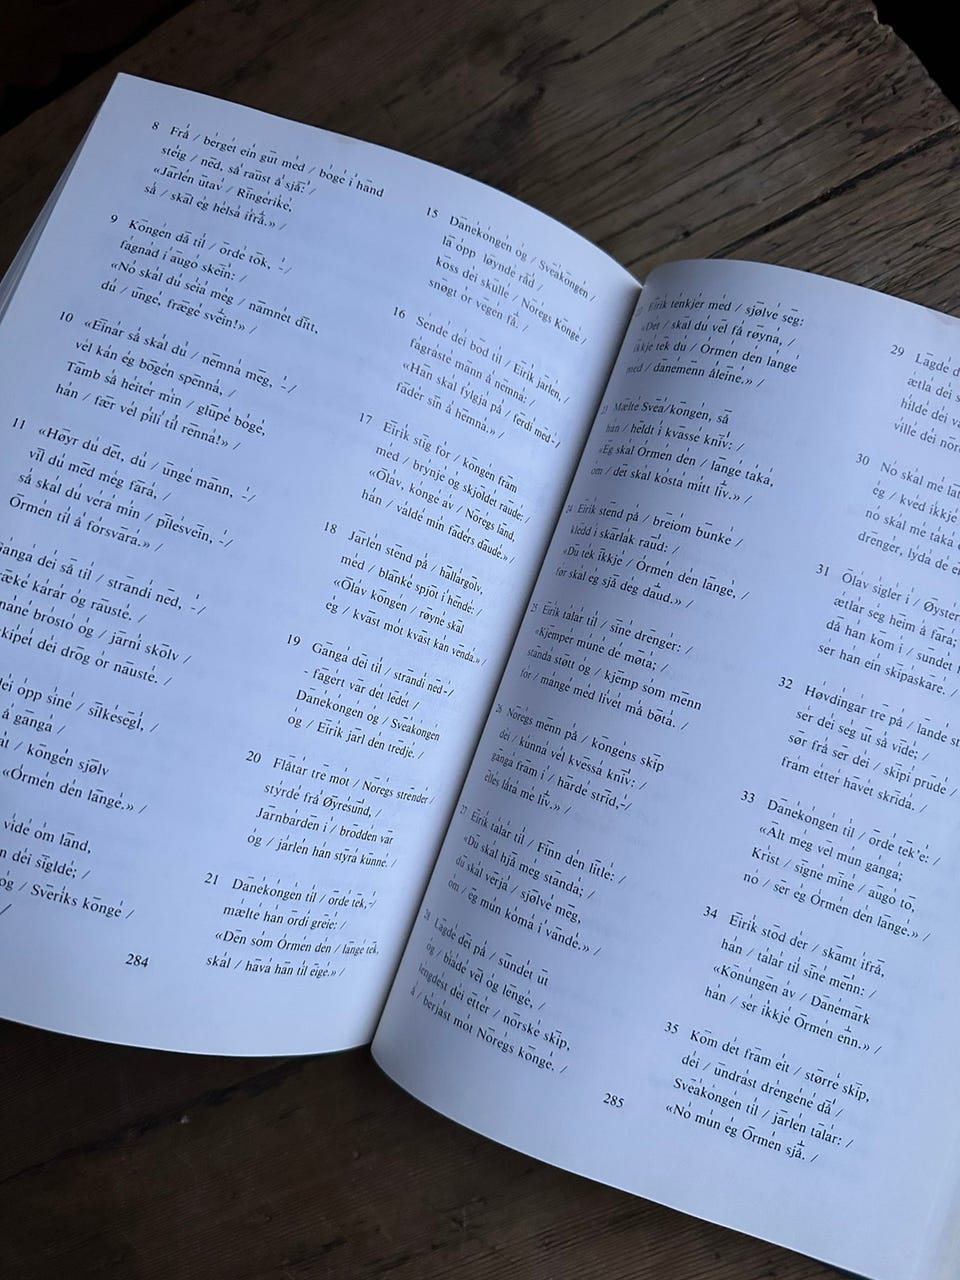 8 Frå / berget ein gut med / boge i hand
steig / ned, så raust å sjå: /
«Jarlen utav / Ringerike,
så / skal eg helsa ifrå.» /
9 Kongen då til / orde tok, -/
fagnad i augo skein:
«No skal du seia meg / namnet ditt,
du / unge, fræge svein!» /
10 «Einar så skal du / nemna meg, -/
vel kan eg bogen spenna,
Tamb så heiter min / glupe boge,
han / fær vel pili til renna!» /
11 «Høyr du det, du / unge mann, -/
vil du med meg fara, /
så skal du vera min / pilesvein, -/
Ormen til å forsvara.» /
Ganga dei så til / strandi ned, -/
karar og rauste. /
brosto og / jarni skolv /
dei drog or nauste. /
dei opp sine / silkesegl, /
å ganga /
/ kongen sjølv
«Ormen den lange.» /
vide om land,
dei siglde; /
og / Sveriks konge /
/
284
15 Danekongen og / Sveakongen /
la opp løynde råd /
koss dei skulle / Noregs konge /
snøgt or vegen få. /
16 Sende dei bod til / Eirik jarlen, /
fagraste mann å nemna: /
«Han skal fylgja på / ferdi med -/
fader sin å hemna.» /
17 Eirik stig for / kongen fram
med / brynje og skjoldet raude:
«Olav, konge av / Noregs land,
han / valde min faders daude.» /
18 Jarlen stend på / hallargolv,
med / blanke spjot i hende: /
«Olav kongen / røyne skal
eg / kvast mot kvast kan venda.» /
19 Ganga dei til / strandi ned -/
- fagert var det ledet /
Danekongen og / Sveakongen
og / Eirik jarl den tredje. /
20 Flåtar tre mot / Noregs strender /
styrde frå Øyresund, /
Jarnbarden i / brodden var
og / jarlen han styra kunne. /
21 Danekongen til / orde tek, -/
mælte han ordi greie: /
«Den som Ormen den / lange tek,
skal / hava han til eige.» /
Eirik tenkjer med / sjølve seg:
«Det / skal du vel få røyna, /
ikkje tek du / Ormen den lange
med / danemenn åleine.» /
23 Mælte Svea/kongen, så
han / heldt i kvasse kniv: /
«Eg skal Ormen den / lange taka,
om / det skal kosta mitt liv.» /
24 Eirik stend på / breiom bunke /
kledd i skarlak raud: /
«Du tek ikkje / Ormen den lange, /
før skal eg sjå deg daud.» /
25 Eirik talar til / sine drenger: /
«Kjemper mune de møta; /
standa støtt og / kjemp som menn
for / mange med livet må bøta. /
26 Noregs menn på / kongens skip
dei / kunna vel kvessa kniv; /
ganga fram i / harde strid, -/
elles låta me liv.» /
27 Eirik talar til / Finn den litle: /
«Du skal hjå meg standa; /
du skal verja / sjølve meg,
om / eg mun koma i vande.» /
28 Lagde dei på / sundet ut
og / biade vel og lenge, /
lengdest dei etter / norske skip,
å / berjast mot Noregs konge. /
285
29 Lagde
ætla dei
hilde dei
ville dei
30 No skal me
eg / kved ikkje
no skal me taka
drenger, lyda de
31 Olav sigler i / Øyster
ætlar seg heim å fara;
då han kom i / sundet
ser han ein skipaskare. /
32 Høvdingar tre på / lande
ser dei seg ut så vide; /
sør frå ser dei / skipi prude /
fram etter havet skrida. /
33 Danekongen til / orde tek'e: /
«Alt meg vel mun ganga;
Krist / signe mine / augo to,
no / ser eg Ormen den lange.» /
34 Eirik stod der / skamt ifrå,
han / talar til sine menn: /
«Konungen av / Danemark
han / ser ikkje Ormen enn.» /
35 Kom det fram eit / større skip,
dei / undrast drengene då /
Sveakongen til / jarlen talar: /
«No mun eg Ormen sjå. /